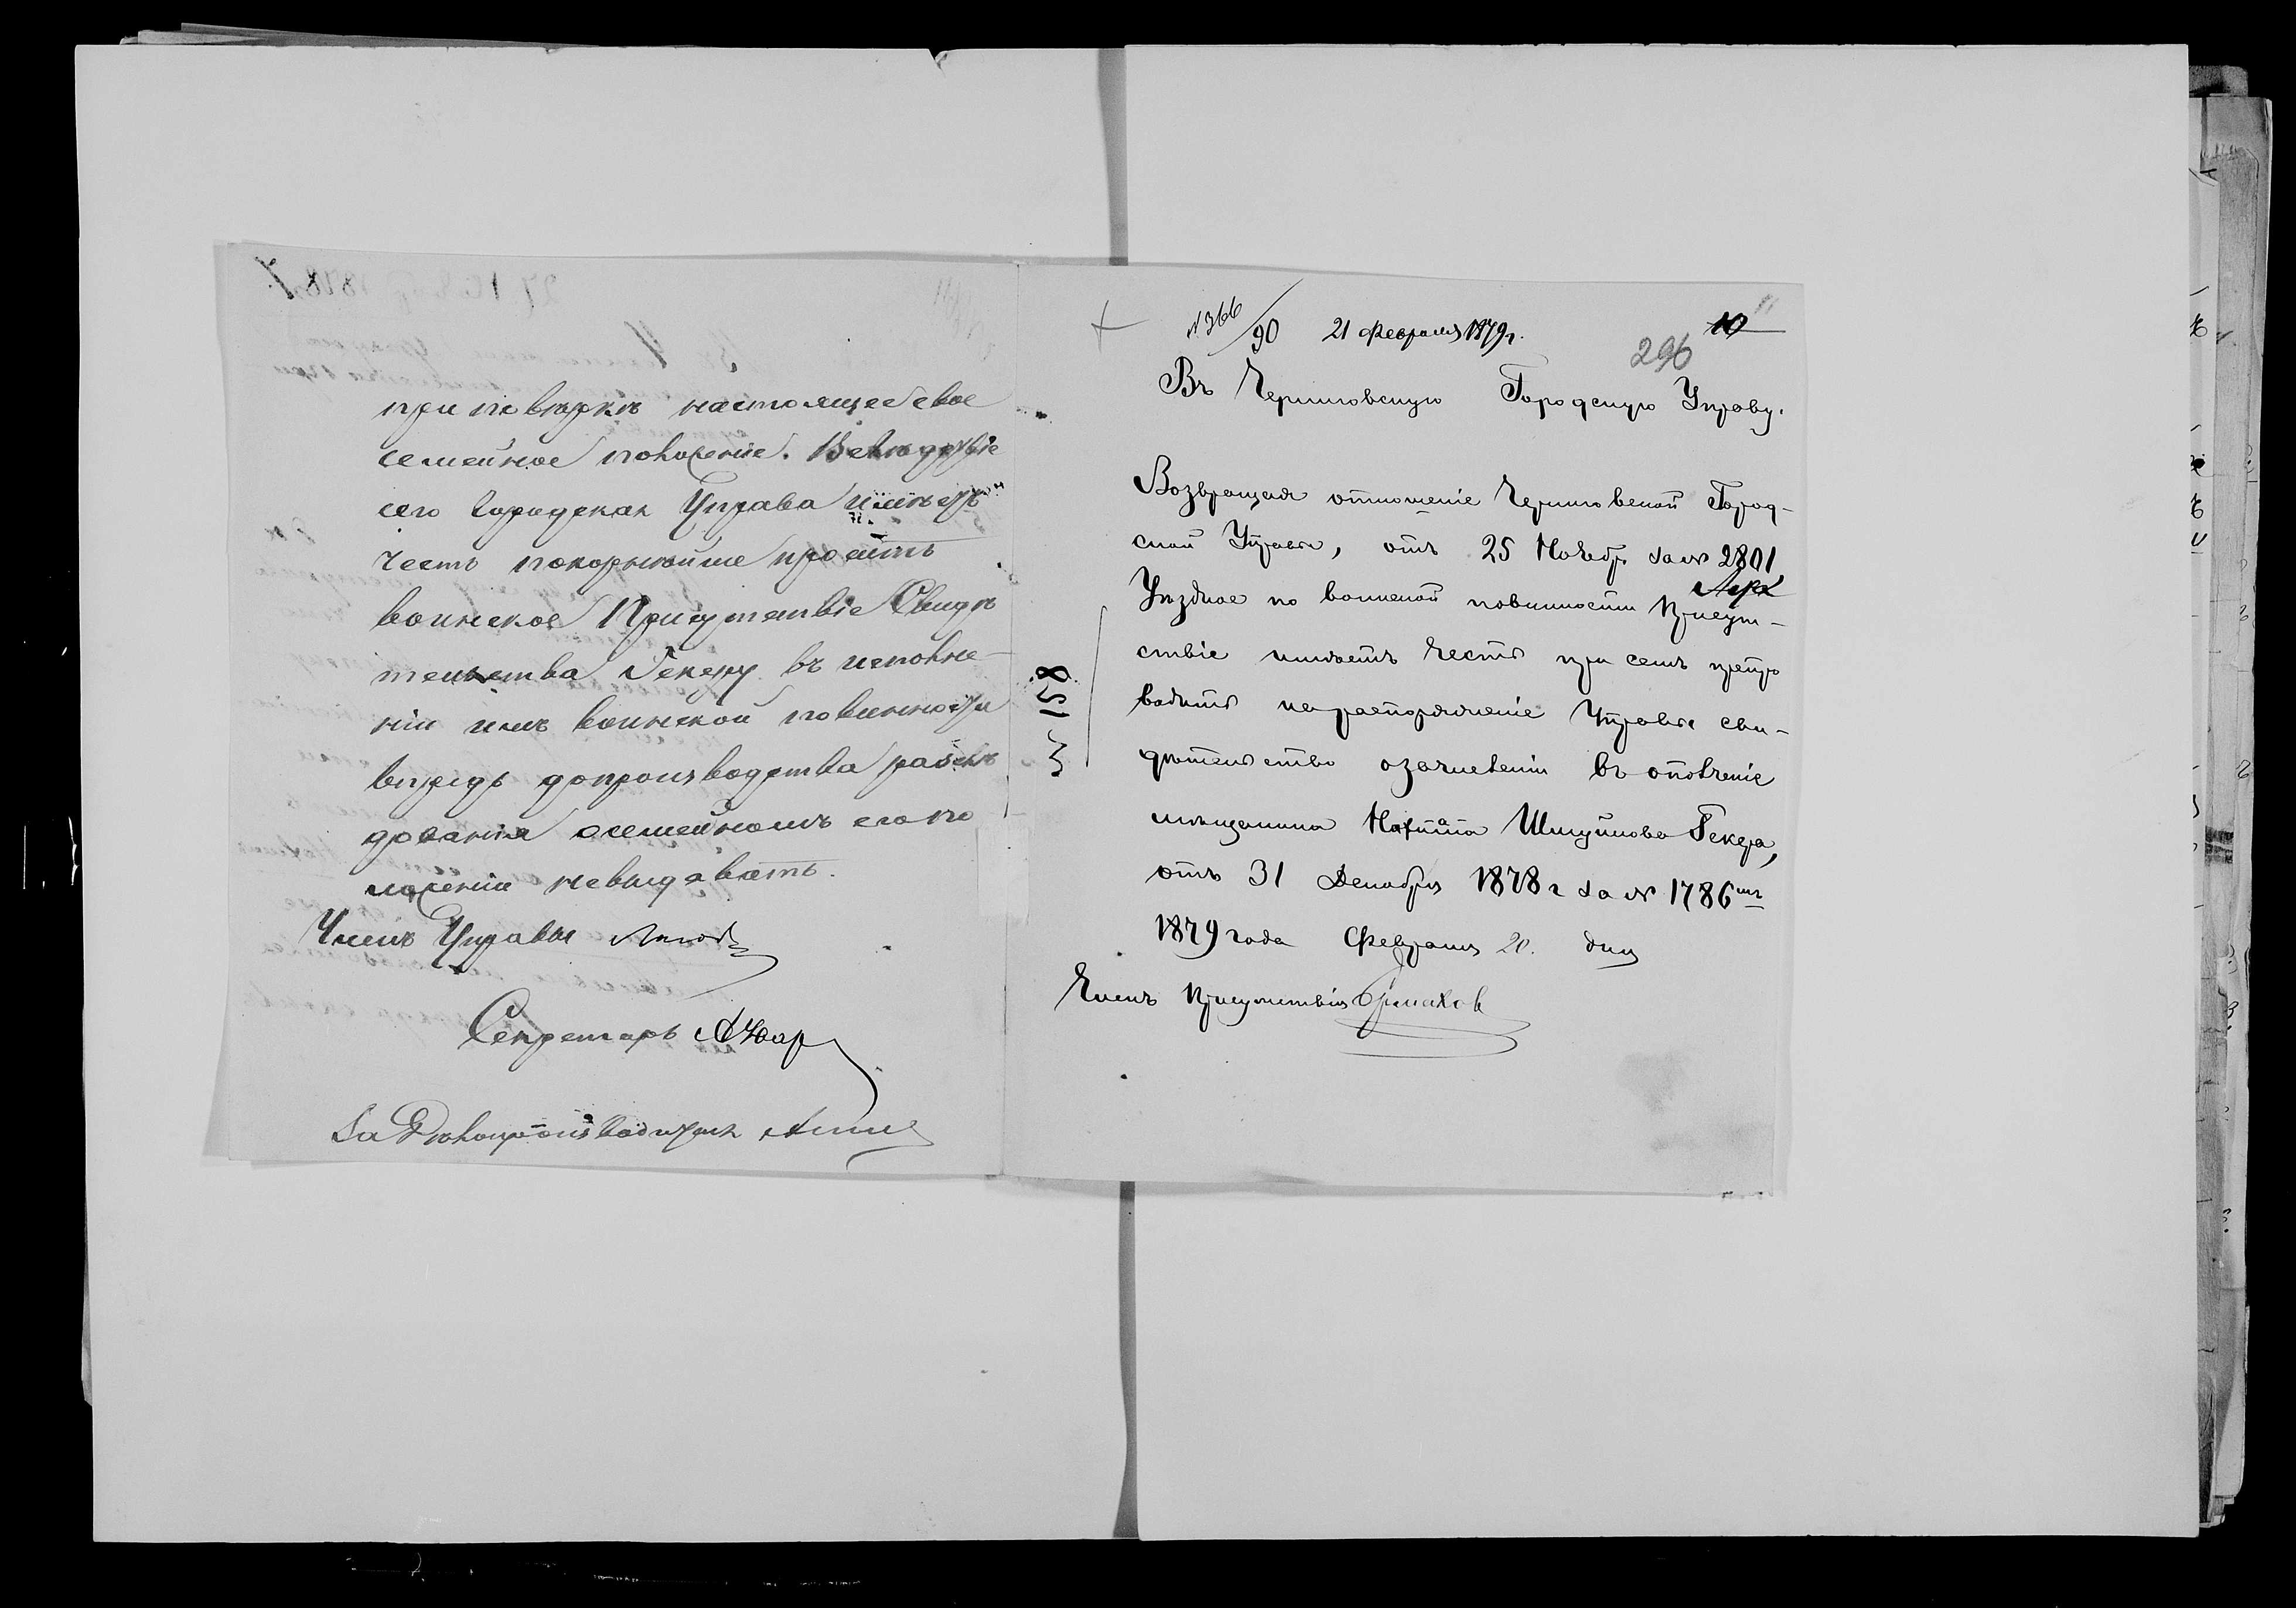 при поверкѣ настоящее свое
семейное положеніе. Вслѣдствіе
сего Городская Управа имѣетъ
честь покорнѣйше просить
воинское Присутствіе Свидѣ
тельства Гекеру въ исполне-
ніи имъ воинской повинности
впредь допроизводства разслѣ
дованія осемейномъ его по
ложеніи невыдавать.
Членъ Управы
Секретарь
За Дѣлопроизводителя
N 366/90 21 Февраля 1879 г.
10
11
296
Въ Черниговскую Городскую Управу.
Возвращая отношеніе Черниговской Город-
ской Управы, отъ 25 Ноябр. за № 2801,
Уѣздное по воинской повинности Присут-
ствіе имѣетъ честь при семъ препро
водить нараспоряженіе Управы сви-
дѣтельство озачисленіи въ ополченіе
мѣщанина Шмуйлова Гекера,
отъ 31 Декабря 1878 г за № 1786мъ
1879 года Февраля 20. дня
Членъ Присутствія Ермаков
858